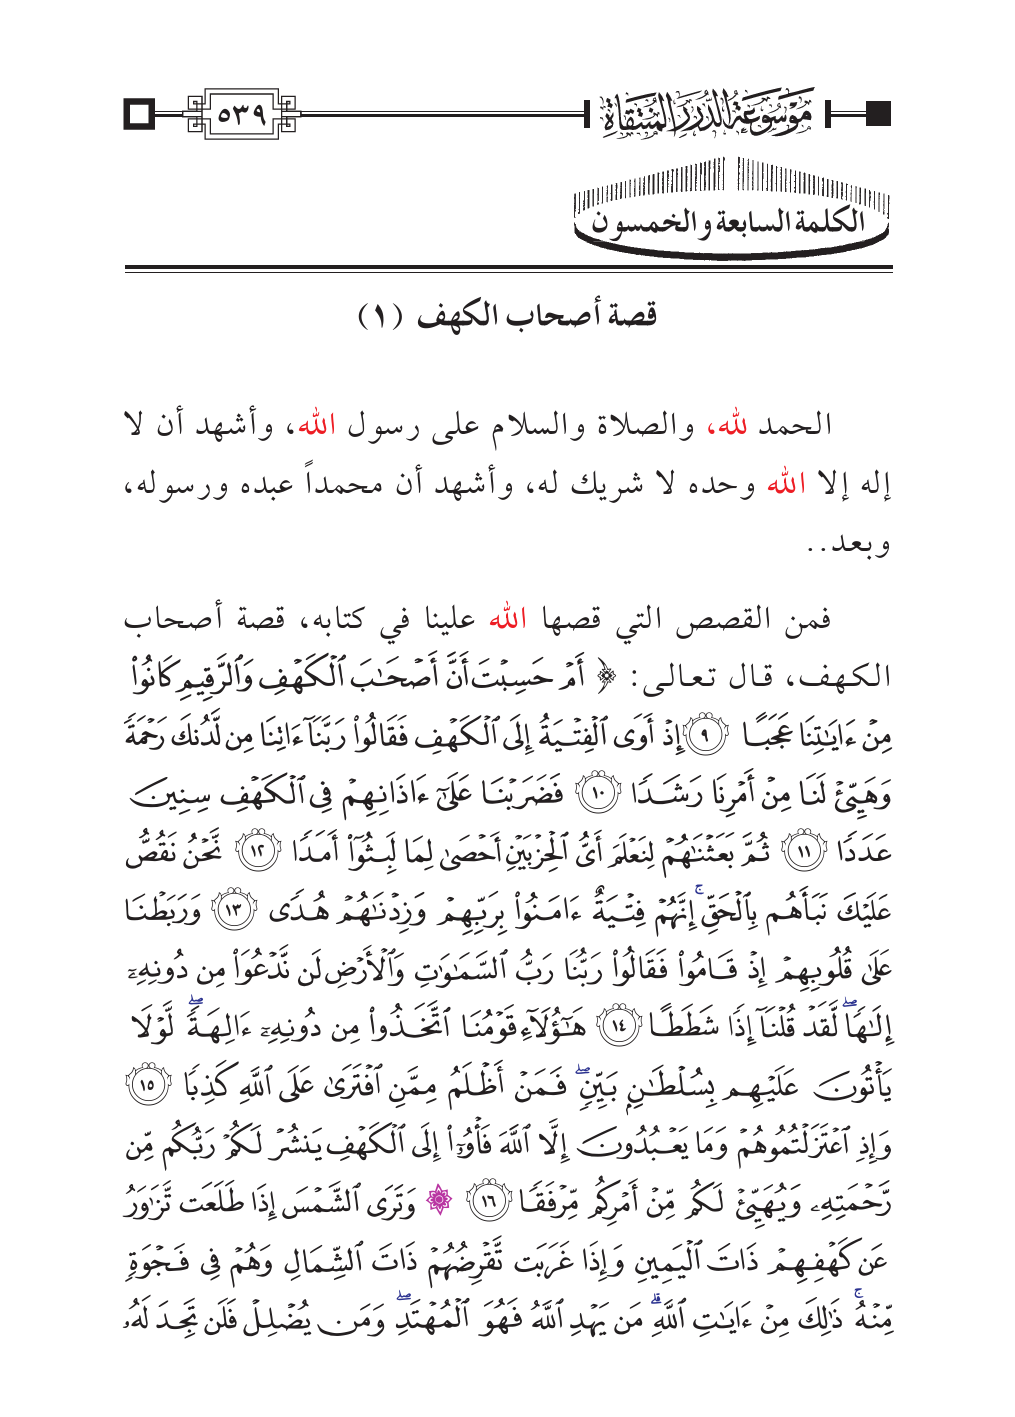 موسوعة الدرر المنتقاة
٥٣٩
الكلمة السابعة والخمسون
قصة أصحاب الكهف (١)
الحمد لله، والصلاة والسلام على رسول الله، وأشهد أن لا
إله إلا الله وحده لا شريك له، وأشهد أن محمداً عبده ورسوله،
وبعد..
فمن القصص التي قصها الله علينا في كتابه، قصة أصحاب
الكهف، قال تعالى: ﴿ أَمْ حَسِبْتَ أَنَّ أَصْحَٰبَ ٱلْكَهْفِ وَٱلرَّقِيمِ كَانُوا۟
مِنْ ءَايَٰتِنَا عَجَبًا ٩ إِذْ أَوَى ٱلْفِتْيَةُ إِلَى ٱلْكَهْفِ فَقَالُوا۟ رَبَّنَآ ءَاتِنَا مِن لَّدُنكَ رَحْمَةً
وَهَيِّئْ لَنَا مِنْ أَمْرِنَا رَشَدًا ١٠ فَضَرَبْنَا عَلَىٰٓ ءَاذَانِهِمْ فِى ٱلْكَهْفِ سِنِينَ
عَدَدًا ١١ ثُمَّ بَعَثْنَٰهُمْ لِنَعْلَمَ أَىُّ ٱلْحِزْبَيْنِ أَحْصَىٰ لِمَا لَبِثُوٓا۟ أَمَدًا ١٢ نَّحْنُ نَقُصُّ
عَلَيْكَ نَبَأَهُم بِٱلْحَقِّ ۚ إِنَّهُمْ فِتْيَةٌ ءَامَنُوا۟ بِرَبِّهِمْ وَزِدْنَٰهُمْ هُدًى ١٣ وَرَبَطْنَا
عَلَىٰ قُلُوبِهِمْ إِذْ قَامُوا۟ فَقَالُوا۟ رَبُّنَا رَبُّ ٱلسَّمَٰوَٰتِ وَٱلْأَرْضِ لَن نَّدْعُوَا۟ مِن دُونِهِۦٓ
إِلَٰهًا ۖ لَّقَدْ قُلْنَآ إِذًا شَطَطًا ١٤ هَٰٓؤُلَآءِ قَوْمُنَا ٱتَّخَذُوا۟ مِن دُونِهِۦٓ ءَالِهَةً ۖ لَّوْلَا
يَأْتُونَ عَلَيْهِم بِسُلْطَٰنٍۭ بَيِّنٍ ۖ فَمَنْ أَظْلَمُ مِمَّنِ ٱفْتَرَىٰ عَلَى ٱللَّهِ كَذِبًا ١٥
وَإِذِ ٱعْتَزَلْتُمُوهُمْ وَمَا يَعْبُدُونَ إِلَّا ٱللَّهَ فَأْوُۥٓا۟ إِلَى ٱلْكَهْفِ يَنشُرْ لَكُمْ رَبُّكُم مِّن
رَّحْمَتِهِۦ وَيُهَيِّئْ لَكُم مِّنْ أَمْرِكُم مِّرْفَقًا ١٦ ۞ وَتَرَى ٱلشَّمْسَ إِذَا طَلَعَت تَّزَٰوَرُ
عَن كَهْفِهِمْ ذَاتَ ٱلْيَمِينِ وَإِذَا غَرَبَت تَّقْرِضُهُمْ ذَاتَ ٱلشِّمَالِ وَهُمْ فِى فَجْوَةٍ
مِّنْهُ ۚ ذَٰلِكَ مِنْ ءَايَٰتِ ٱللَّهِ ۗ مَن يَهْدِ ٱللَّهُ فَهُوَ ٱلْمُهْتَدِ ۖ وَمَن يُضْلِلْ فَلَن تَجِدَ لَهُۥ